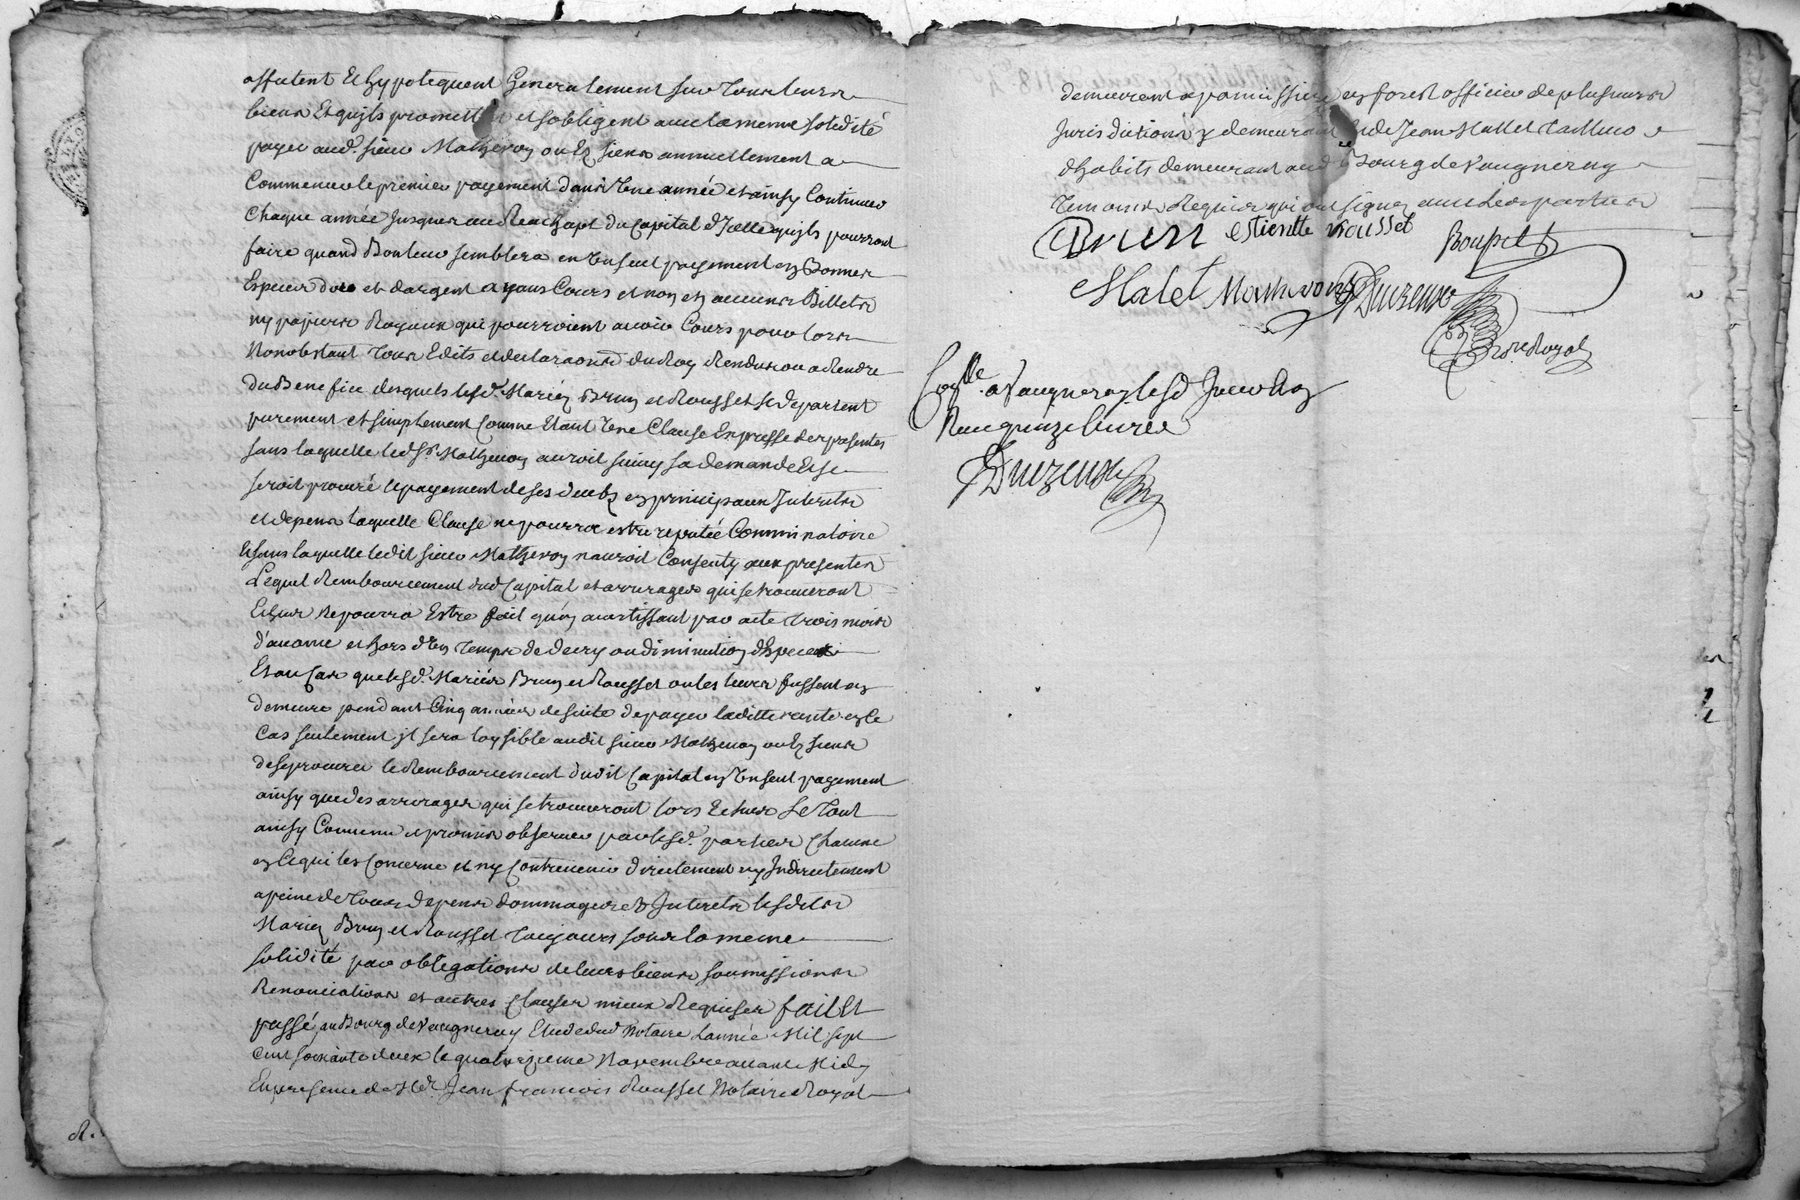 affectent et hypotequent Generalement sur tous leurs
biens et quils promettent et sobligent avec la meme solidité
payer aud. sieur Matheron ou Es siens annuellement a
Commencer le premier payement dans Une année et ainsy Continuer
chaque année Jusques au Reachapt du Capital d'Icelle quils pourront
faire quand Bon leur semblera en Un seul payement en Bonnes
Especes dor et dargent ayans Cours et non en aucuns Billets
ny papiers Royaux qui pourroient avoir Cours pour lors
Nonobstant tous Edits et declaraons du Roy Rendus ou a Rendre
du Benefice desquels lesd. Mariés Brun et Rousset se departent
purement et simplement Comme Etant Une Clause Expresse des presentes
sans laquelle led Sr. Matheron auroit suivy sa demande Et se
seroit procuré le payement de ses deubs en principaux Interets
et depens laquelle Clause ne pourra estre reputée Comminatoire
Et sans laquelle ledit sieur Matheron nauroit Consenty aux presentes
Lequel Rembourcement dud Capital et arrerages qui se trouveront
Echus Ne pourra Estre fait qu'en avertissant par acte trois mois
d'avance et hors d'Un temps de decry ou diminution d'Especes
Et au Cas que lesd. Mariés Brun et Rousset ou les leurs fussent en
demeure pendant Cinq années de suite de payer laditte rente en ce
Cas seulement jl sera loysible audit sieur Matheron ou Es siens
de se procurer le Rembourcement dudit Capital en Un seul payement
ainsy que des arrerages qui se trouveront lors Echus Le Tout
ainsy Convenu et promis observer par lesd. parties Chacune
en Ce qui les Concerne et ny Contrevenir directement ny Indirectement
a peine de tous depens dommages & Interets lesdits
Mariés Brun et Rousset toujours sous la meme
solidité par obligations de leurs biens soumissions
Renonciations et autres Clauses mieux Requises fait et
passé au Bourg de Vaugneray Etude dud Notaire Lannée Mil sept
Cent soixante deux le quatorzieme Novembre avant Midy
En presence de Me. Jean francois Rousset Notaire Royal
demeurent a en forest officier de plusieurs
Jurisdictions y demeurant et de Jean Mallet tailleur
dhabits demeurant aud Bourg de Vaugneray
temoins Requis qui ont signés avec Les parties
Brun estiennette rousset
Malet Matheron
Nore Royal
Conlle. a Vaugneray le
Reçu quinze livres